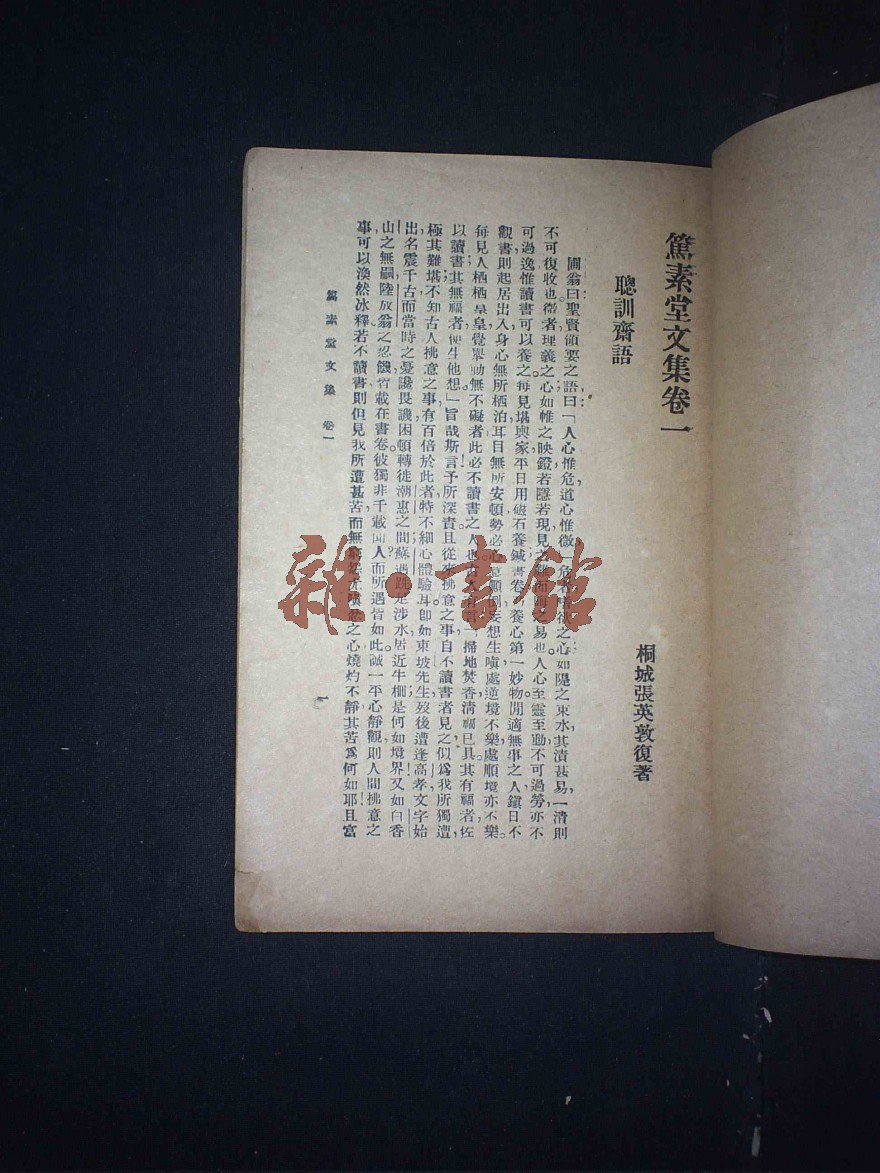 篤素堂文集卷一
桐城張英敦復著
聰訓齋語
圃翁曰聖賢領要之語曰「人心惟危道心惟微」危者嗜欲之心如隄之束水其潰甚易一潰則
不可復收也微者理義之心如帷之映鐙若隱若現見之難而晦之易也人心至靈至動不可過勞亦不
可過逸惟讀書可以養之每見堪輿家平日用磁石養鍼書卷乃養心第一妙物閒適無事之人鎮日不
觀書則起居出入身心無所栖泊耳目無所安頓勢必心意顛倒妄想生嗔處逆境不樂處順境亦不樂。
每見人栖栖皇皇覺舉動無不礙者此必不讀書之人也古人有言「掃地焚香清福已具其有福者佐
以讀書其無福者便生他想」旨哉斯言予所深賞且從來拂意之事自不讀書者見之似爲我所獨遭，
極其難堪不知古人拂意之事有百倍於此者特不細心體驗耳卽如東坡先生歿後遭逢高孝文字始
出名震千古而當時之憂讒畏譏困頓轉徙潮惠之間蘇過跣足涉水居近牛欄是何如境界又如白香
山之無嗣陸放翁之忍饑皆載在書卷彼獨非千載聞人而所遇皆如此誠一平心靜觀則人間拂意之
事可以渙然冰釋若不讀書則但見我所遭甚苦而無窮怨尤嗔忿之心燒灼不靜其苦爲何如耶且富
篤素堂文集 卷一
一
雜·書館